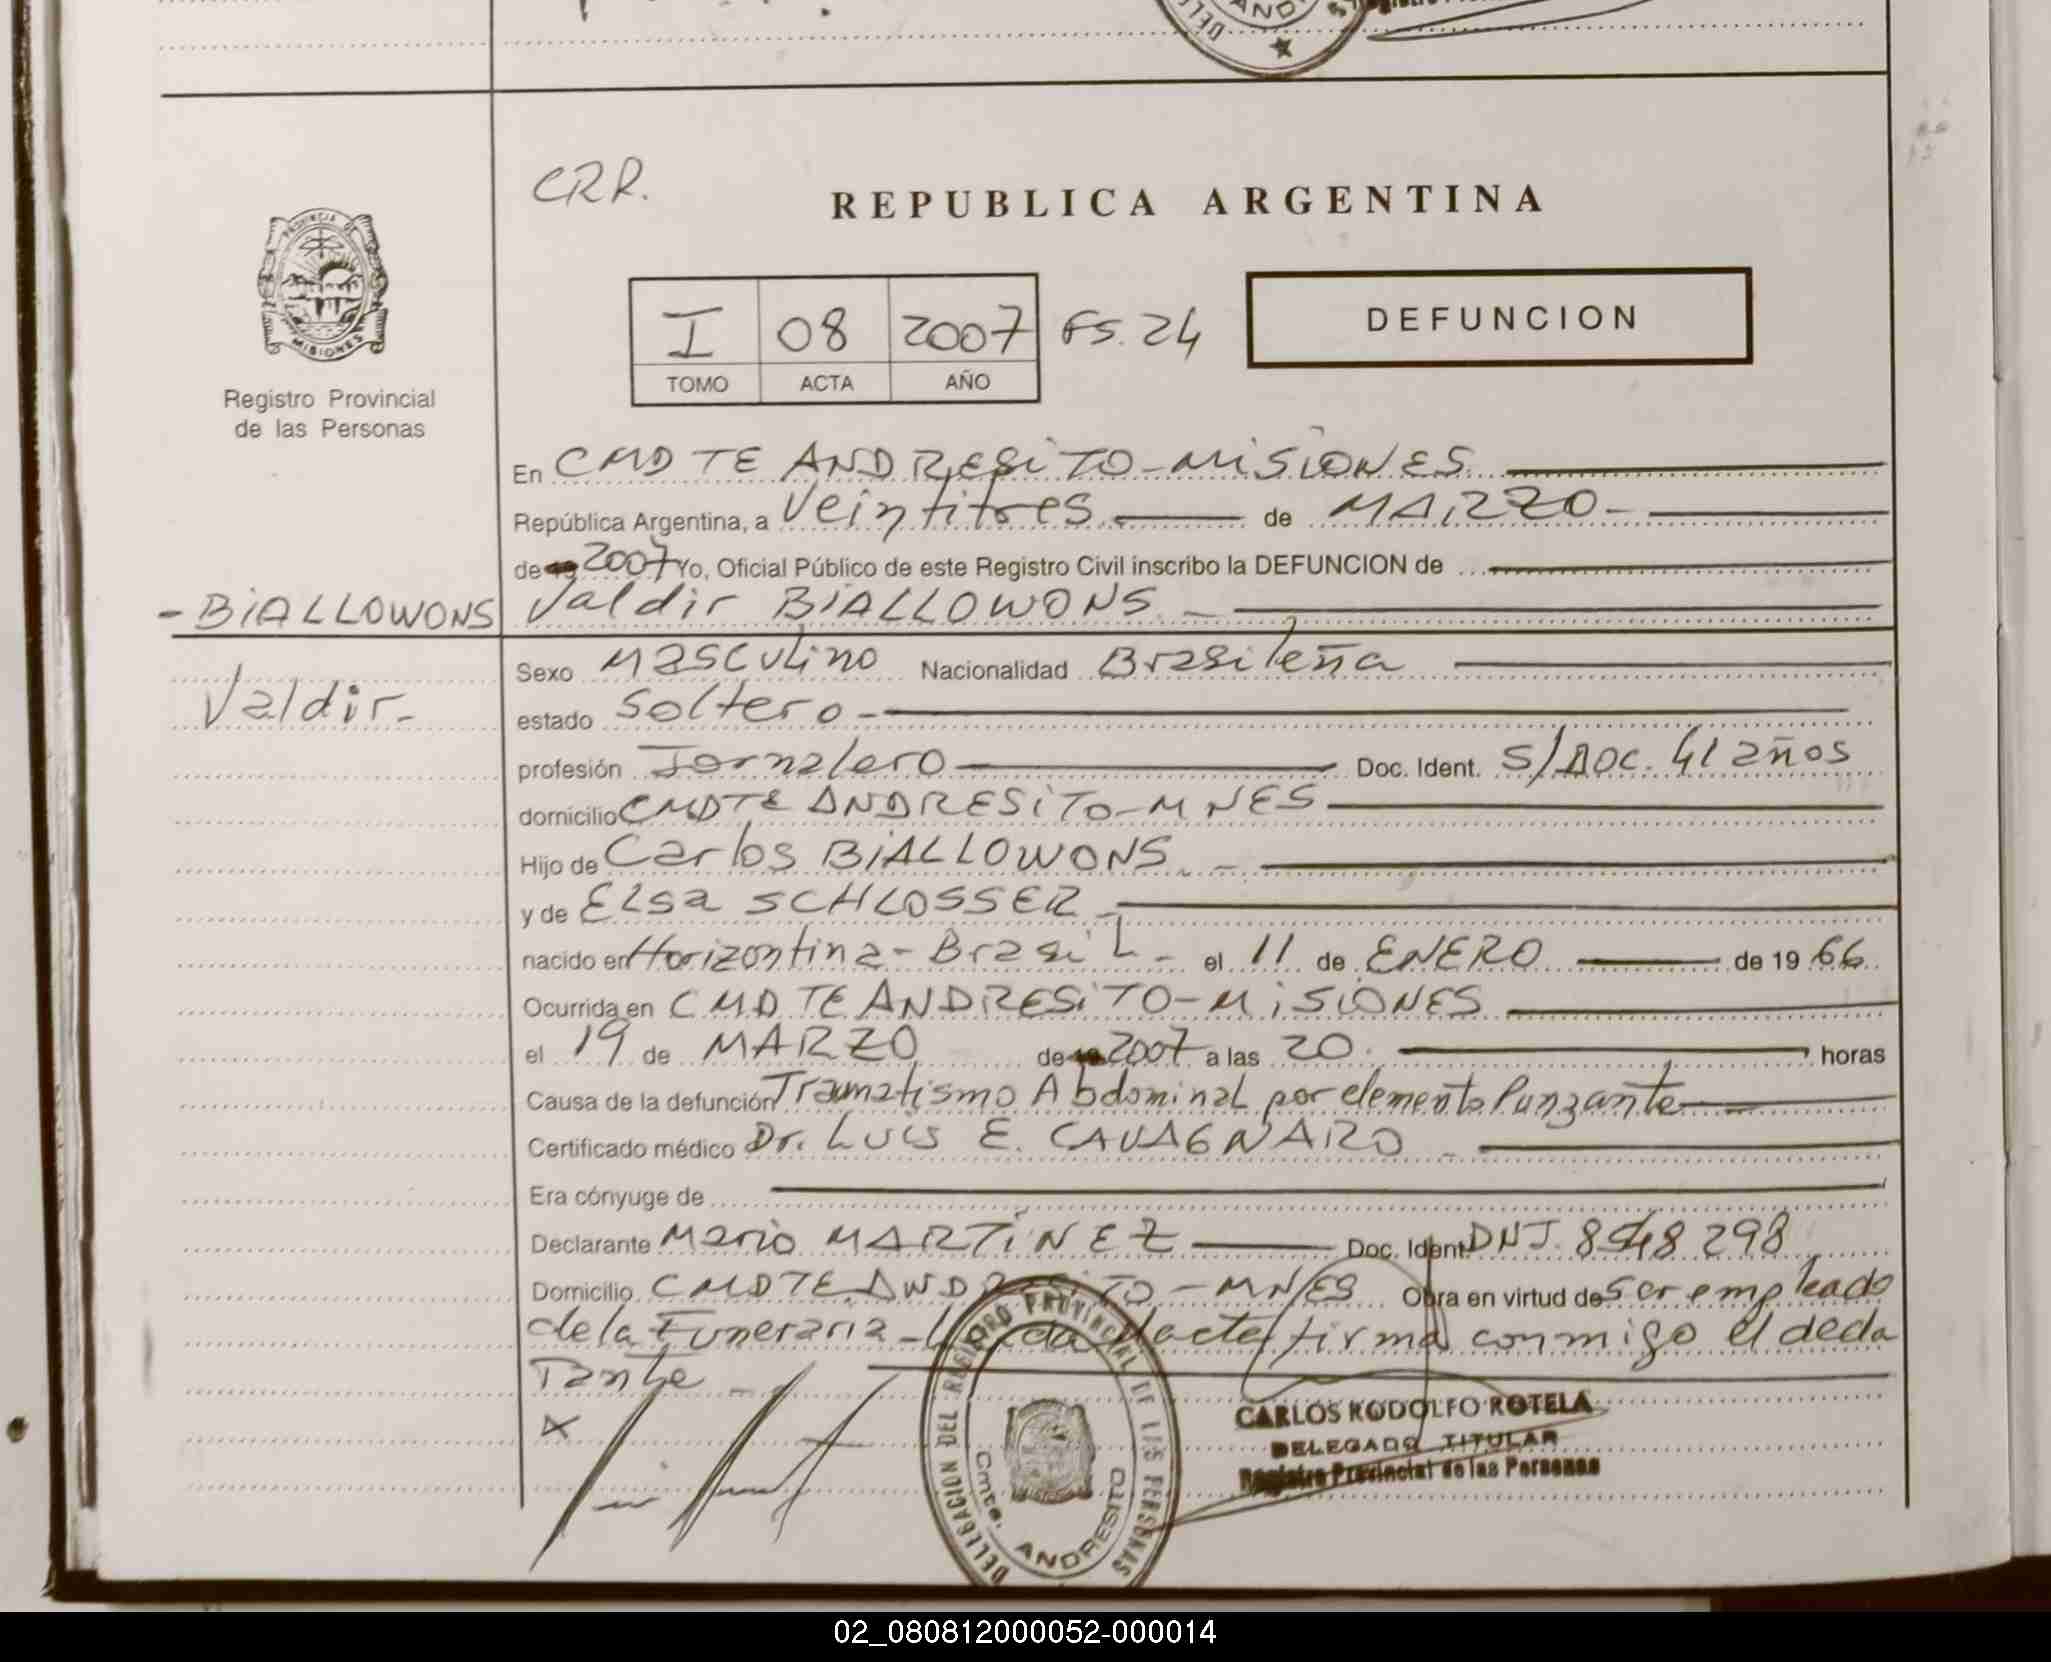 CRR.
REPUBLICA ARGENTINA
PROVINCIA DE
MISIONES
Registro Provincial
de las Personas
I 08 2007 FS. 24
TOMO ACTA AÑO
DEFUNCION
En CMDTE ANDRESITO - MISIONES
República Argentina, a Veintitres de MARZO -
de 19 2007 Yo, Oficial Público de este Registro Civil inscribo la DEFUNCION de
- BIALLOWONS Valdir BIALLOWONS -
Valdir -
Sexo Masculino Nacionalidad Brasileña
estado Soltero -
profesión Jornalero Doc. Ident. S/DOC. 41 años
domicilio CMDTE ANDRESITO - MNES
Hijo de Carlos BIALLOWONS -
y de ELSa SCHLOSSER -
nacido en Horizontina - BrasiL - el 11 de ENERO de 19 66
Ocurrida en CMDTE ANDRESITO - MISIONES
el 19 de MARZO de 19 2007 a las 20. horas
Causa de la defunción Traumatismo Abdominal por elemento Punzante
Certificado médico Dr. LUIS E. CAVAGNARO -
Era cónyuge de
Declarante Mario MARTINEZ Doc. Ident. DNI. 8548298
Domicilio CMDTE ANDRESITO - MNES Obra en virtud de ser empleado
de la Funeraria - Leida el acta firma conmigo el decla
rante -
x
DELEGACION DEL REGISTRO PROVINCIAL DE LAS PERSONAS
Cmte. ANDRESITO
CARLOS RODOLFO ROTELA
DELEGADO TITULAR
Registro Provincial de las Personas
02_080812000052-000014